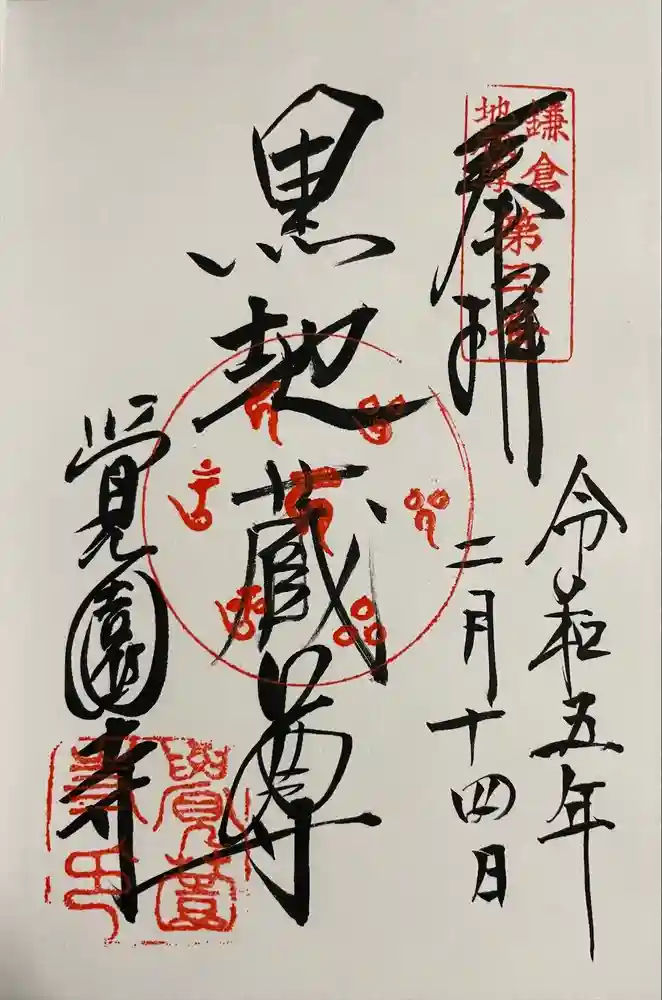 奉拝
鎌倉第三番
地蔵尊
令和五年
二月十四日
黒地蔵尊
覚園寺
覺園寺印